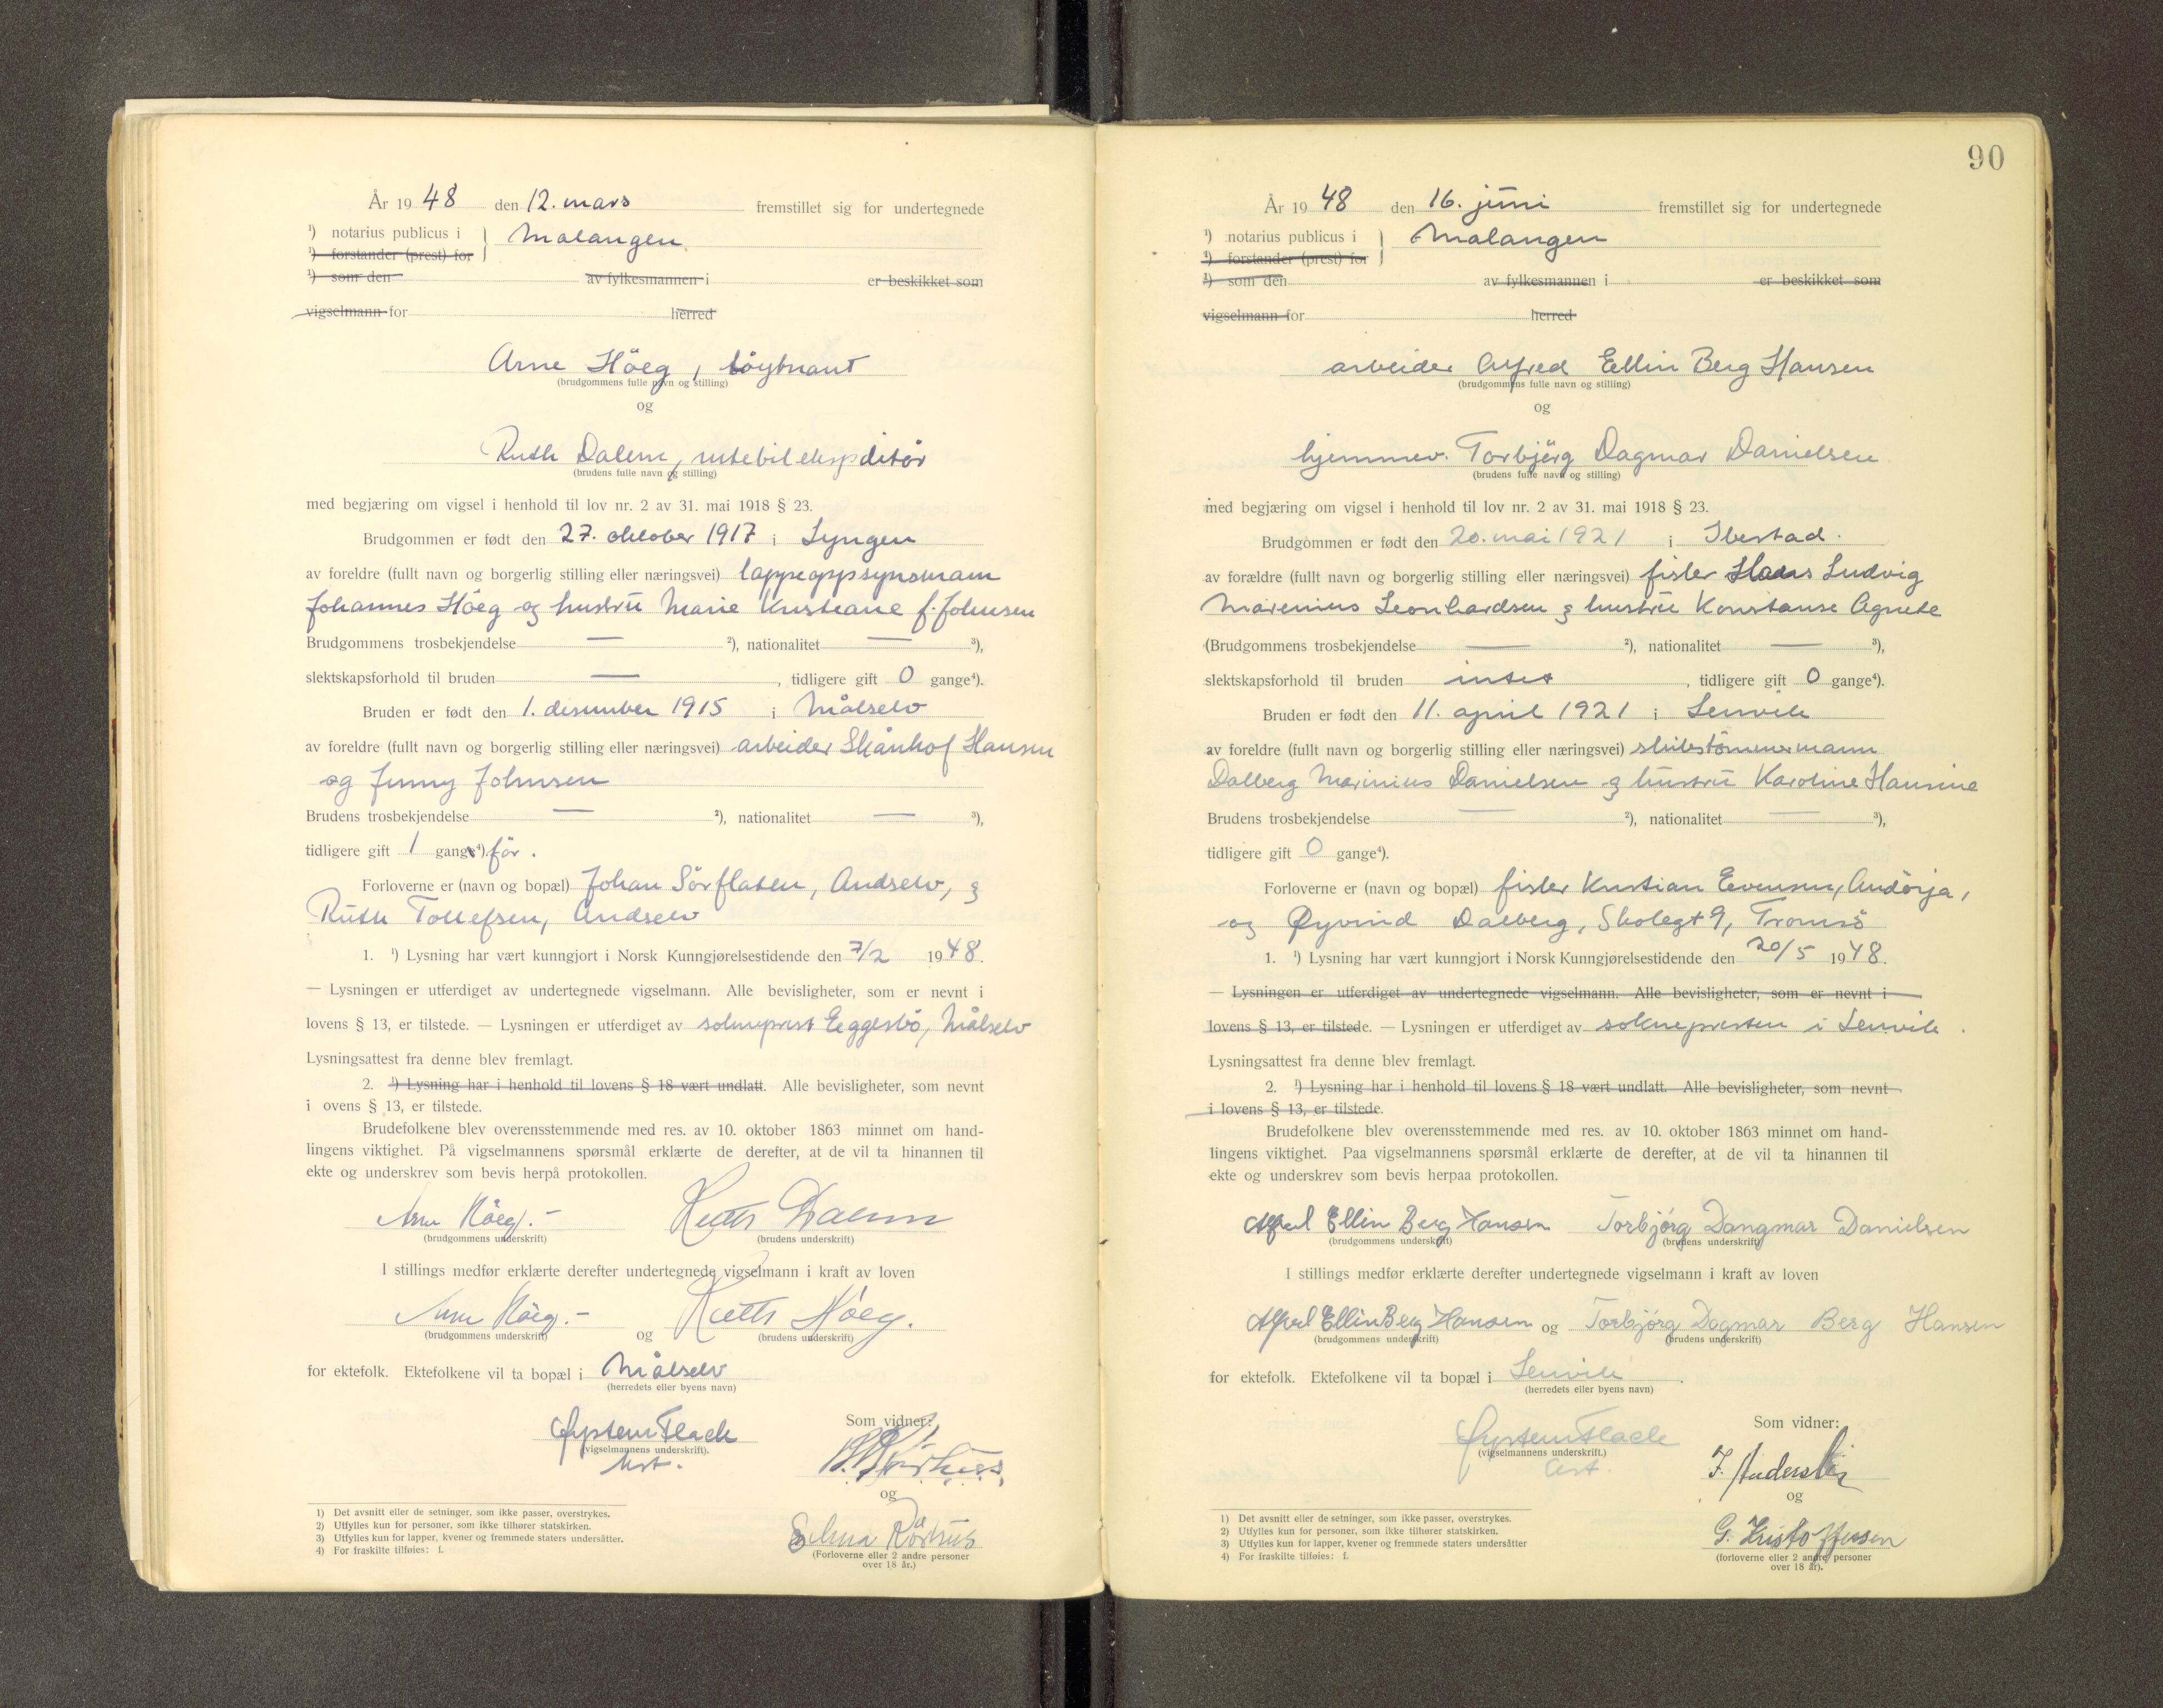 År 19 48 den 12. mars fremstillet sig for undertegnede
¹) notarius publicus i } Malangen
¹) forstander (prest) for
¹) som den av fylkesmannen i er beskikket som
vigselmann for herred
Arne Höeg, löytnant
(brudgommens fulle navn og stilling)
og
Ruth Dalem, rutebilekspditör
(brudens fulle navn og stilling)
med begjæring om vigsel i henhold til lov nr. 2 av 31. mai 1918 § 23.
Brudgommen er født den 27. oktober 1917 i Lyngen
av foreldre (fullt navn og borgerlig stilling eller næringsvei) lappeoppsynsmann
Johannes Höeg og hustru Marie Kristiane f. Johnsen
Brudgommens trosbekjendelse — ²), nationalitet — ³),
slektskapsforhold til bruden — , tidligere gift 0 gange⁴).
Bruden er født den 1. desember 1915 i Målselv
av foreldre (fullt navn og borgerlig stilling eller næringsvei) arbeider Skånhof Hansen
og Jenny Johnsen
Brudens trosbekjendelse — ²), nationalitet — ³),
tidligere gift 1 gang⁴) för.
Forloverne er (navn og bopæl) Johan Sörflaten, Andselv, &
Ruth Tollefsen, Andselv
1. ¹) Lysning har vært kunngjort i Norsk Kunngjørelsestidende den 7/2 1948.
— Lysningen er utferdiget av undertegnede vigselmann. Alle bevisligheter, som er nevnt i
lovens § 13, er tilstede. — Lysningen er utferdiget av sokneprest Eggesbö, Målselv
Lysningsattest fra denne blev fremlagt.
2. ¹) Lysning har i henhold til lovens § 18 vært undlatt. Alle bevisligheter, som nevnt
i ovens § 13, er tilstede.
Brudefolkene blev overensstemmende med res. av 10. oktober 1863 minnet om hand-
lingens viktighet. På vigselmannens spørsmål erklærte de derefter, at de vil ta hinannen til
ekte og underskrev som bevis herpå protokollen.
Arne Höeg.- Ruth Dalem
(brudgommens underskrift) (brudens underskrift)
I stillings medfør erklærte derefter undertegnede vigselmann i kraft av loven
Arne Höeg.- og Ruth Höeg.
(brudgommens underskrift) (brudens underskrift)
for ektefolk. Ektefolkene vil ta bopæl i Målselv
(herredets eller byens navn)
Øystein Flack Som vidner:
(vigselmannens underskrift).
og
Selma Rörhus
(Forloverne eller 2 andre personer
over 18 år.)
1) Det avsnitt eller de setninger, som ikke passer, overstrykes.
2) Utfylles kun for personer, som ikke tilhører statskirken.
3) Utfylles kun for lapper, kvener og fremmede staters undersåtter.
4) For fraskilte tilføies: f.
90
År 19 48 den 16. juni fremstillet sig for undertegnede
¹) notarius publicus i } Malangen
¹) forstander (prest) for
¹) som den av fylkesmannen i er beskikket som
vigselmann for herred
arbeider Alfred Ellin Berg Hansen
(brudgommens fulle navn og stilling)
og
hjemmev. Torbjörg Dagmar Danielsen
(brudens fulle navn og stilling)
med begjæring om vigsel i henhold til lov nr. 2 av 31. mai 1918 § 23.
Brudgommen er født den 20. mai 1921 i Ibestad.
av forældre (fullt navn og borgerlig stilling eller næringsvei) fisker Hans Ludvig
Marenius Leonhardsen & hustru Konstanse Agnete
(Brudgommens trosbekjendelse — ²), nationalitet — ³),
slektskapsforhold til bruden intet , tidligere gift 0 gange⁴).
Bruden er født den 11. april 1921 i Lenvik
av foreldre (fullt navn og borgerlig stilling eller næringsvei) skibstömmermann
Dalberg Marinius Danielsen & hustru Karoline Hansine
Brudens trosbekjendelse — ²), nationalitet — ³),
tidligere gift 0 gange⁴).
Forloverne er (navn og bopæl) fisker Kristian Evensen, Andörja,
og Øyvind Dalberg, Skolegt 9, Tromsö
1. ¹) Lysning har vært kunngjort i Norsk Kunngjørelsestidende den 20/5 1948.
— Lysningen er utferdiget av undertegnede vigselmann. Alle bevisligheter, som er nevnt i
lovens § 13, er tilstede. — Lysningen er utferdiget av soknepresten i Lenvik.
Lysningsattest fra denne blev fremlagt.
2. ¹) Lysning har i henhold til lovens § 18 vært undlatt. Alle bevisligheter, som nevnt
i lovens § 13, er tilstede.
Brudefolkene blev overensstemmende med res. av 10. oktober 1863 minnet om hand-
lingens viktighet. Paa vigselmannens spørsmål erklærte de derefter, at de vil ta hinannen til
ekte og underskrev som bevis herpaa protokollen.
Alfred Ellin Berg Hansen Torbjörg Dangmar Danielsen
(brudgommens underskrift) (brudens underskrift)
I stillings medfør erklærte derefter undertegnede vigselmann i kraft av loven
Alfred Ellin Berg Hansen og Torbjörg Dagmar Berg Hansen
(brudgommens underskrift) (brudens underskrift)
for ektefolk. Ektefolkene vil ta bopæl i Lenvik.
(herredets eller byens navn)
Øystein Flack Som vidner:
(vigselmannens underskrift.)
og
G. Kristoffersen
(forloverne eller 2 andre personer
over 18 år).
1) Det avsnitt eller de setninger, som ikke passer, overstrykes.
2) Utfylles kun for personer, som ikke tilhører statskirken.
3) Utfylles kun for lapper, kvener og fremmede staters undersåtter
4) For fraskilte tilføies: f.